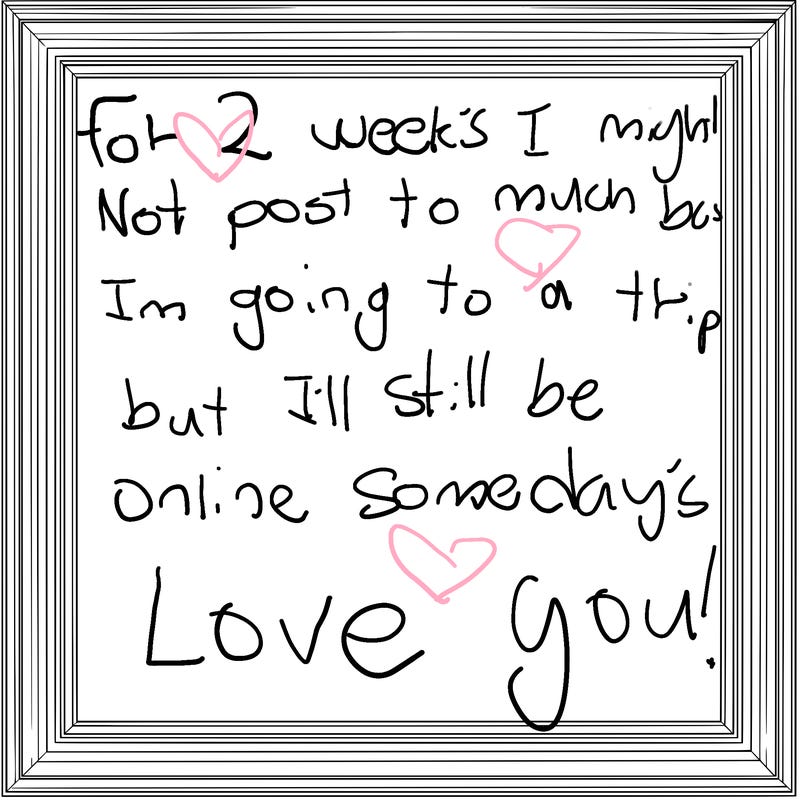 For 2 week's I might
Not post to much bcs
Im going to a trip
but I'll still be
online someday's
Love you!